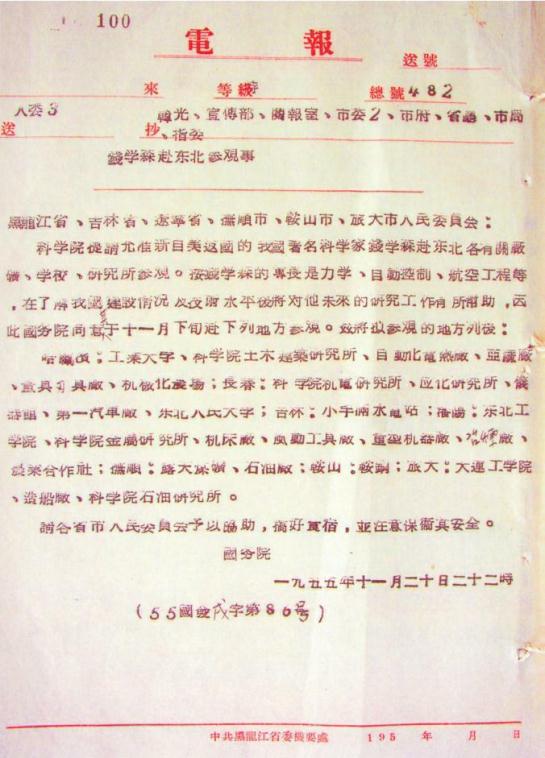 100
電 報
送號
來 等級 總號 482
人委3 韓光、宣傳部、簡報室、市委2、市府、省廳、市局
送 抄 、指委
錢学森赴东北参观事
黑龍江省、吉林省、遼寧省、撫順市、鞍山市、旅大市人民委員会：
科学院提請允准新自美返國的我國著名科学家錢学森赴东北各有關廠
礦、学校、研究所参观。按錢学森的專長是力学、自動控制、航空工程等
，在了解我國建設情况及技術水平後將对他未來的研究工作有所帮助，因
此國务院同意於十一月下旬赴下列地方参观。兹將拟参观的地方列後：
哈爾濱：工業大学、科学院土木建築研究所、自動化電熱廠、亚蔴廠
、量具刃具廠、机械化農場；長春：科学院机電研究所、应化研究所、儀
器館、第一汽車廠、东北人民大学；吉林：小丰满水電站；瀋陽：东北工
学院、科学院金屬研究所、机床廠、風動工具廠、重型机器廠、廠、
農業合作社；撫順：露天煤礦、石油廠；鞍山：鞍鋼；旅大：大連工学院
、造船廠、科学院石油研究所。
請各省市人民委員会予以協助，搞好食宿，並注意保衞其安全。
國务院
一九五五年十一月二十日二十二時
（55國 戊字第86号）
中共黑龍江省委機要處 195 年 月 日